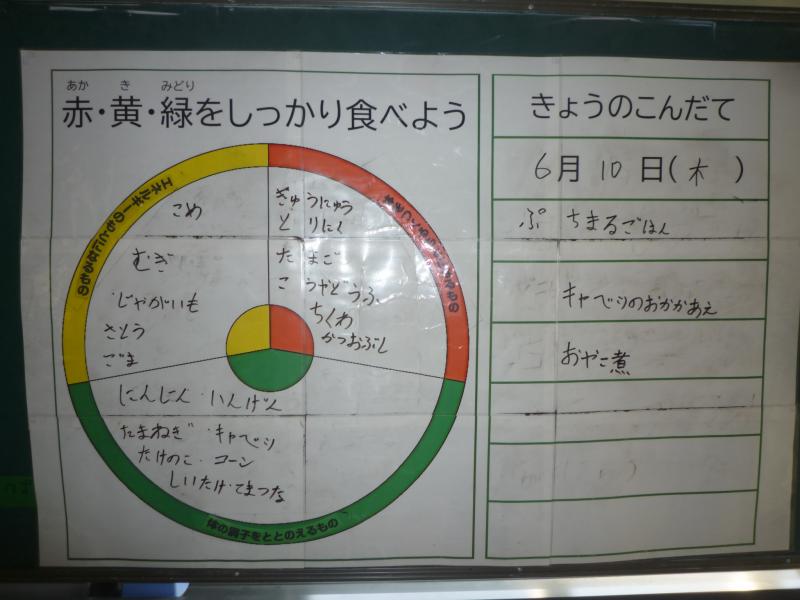 あか き みどり
赤・黄・緑をしっかり食べよう
エネルギーのもとになるもの
こめ
むぎ
じゃがいも
さとう
ごま
ぎゅうにゅう
とりにく
たまご
こうやどうふ
ちくわ
かつおぶし
にんじん・いんげん
たまねぎ・キャベツ
たけのこ・コーン
しいたけ・こまつな
体の調子をととのえるもの
きょうのこんだて
6月 10 日(木)
ぷちまるごはん
キャベツのおかかあえ
おやこ煮